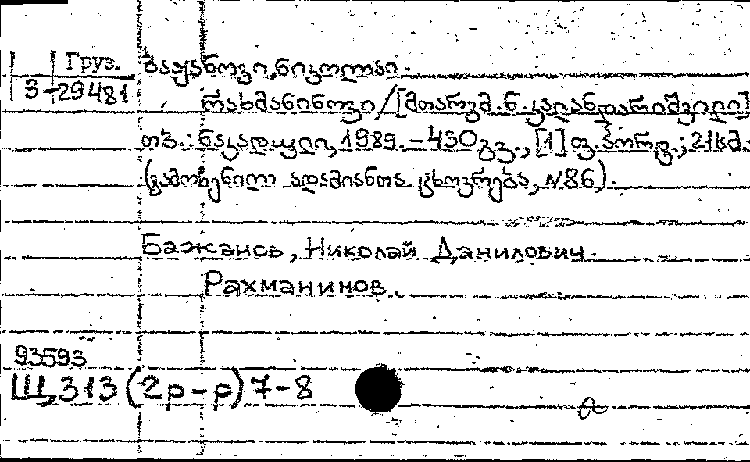 Груз. ბაჟანოვი, ნიკოლაი.
3-29481 რახმანინოვი/[მთარგმ. ნ. კალანდარიშვილი]
თბ.: ნაკადული, 1989. - 430 გვ., [1] ფ. პორტ.; 21 სმ.
(გამოჩენილ ადამიანთა ცხოვრება, №86).
Бажанов, Николай Данилович.
Рахманинов.
93593
Щ313(2р-р)7-8